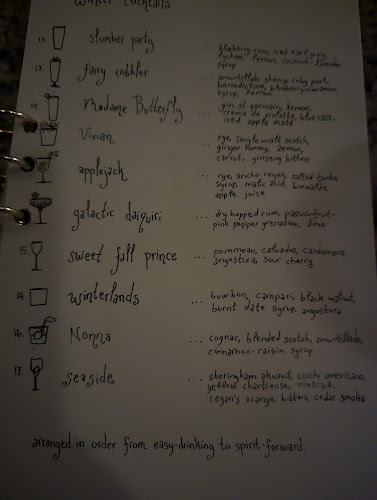 winter cocktails
13. slumber party ... blueberry rum, iced earl grey,
lychee, lemon, coconut-lavender
syrup
13. fairy cobbler ... amontillado sherry, ruby port,
benedictine, blueberry-cinnamon
syrup, lemon
14. Madame Butterfly ... gin, st. germain, lemon,
creme de violette, blue
iced apple malt
Vivian ... rye, single malt scotch,
ginger honey, lemon,
carrot, ginseng bitters
applejack ... rye, ancho reyes, salted
syrup, malic acid,
apple juice
galactic daiquiri ... dry hopped rum, passionfruit-
pink pepper grenadine, lime
15. sweet fall prince ... pommeau, calvados, cardamom,
angostura, sour cherry
14. winterlands ... bourbon, campari, black walnut,
burnt date syrup, angostura
16. Nonna ... cognac, blended scotch, amontillado,
cinnamon-raisin syrup
17. seaside ... sheringham akvavit, cocchi americano,
yellow chartreuse,
regan's orange bitters, cedar smoke
arranged in order from easy-drinking to spirit-forward.